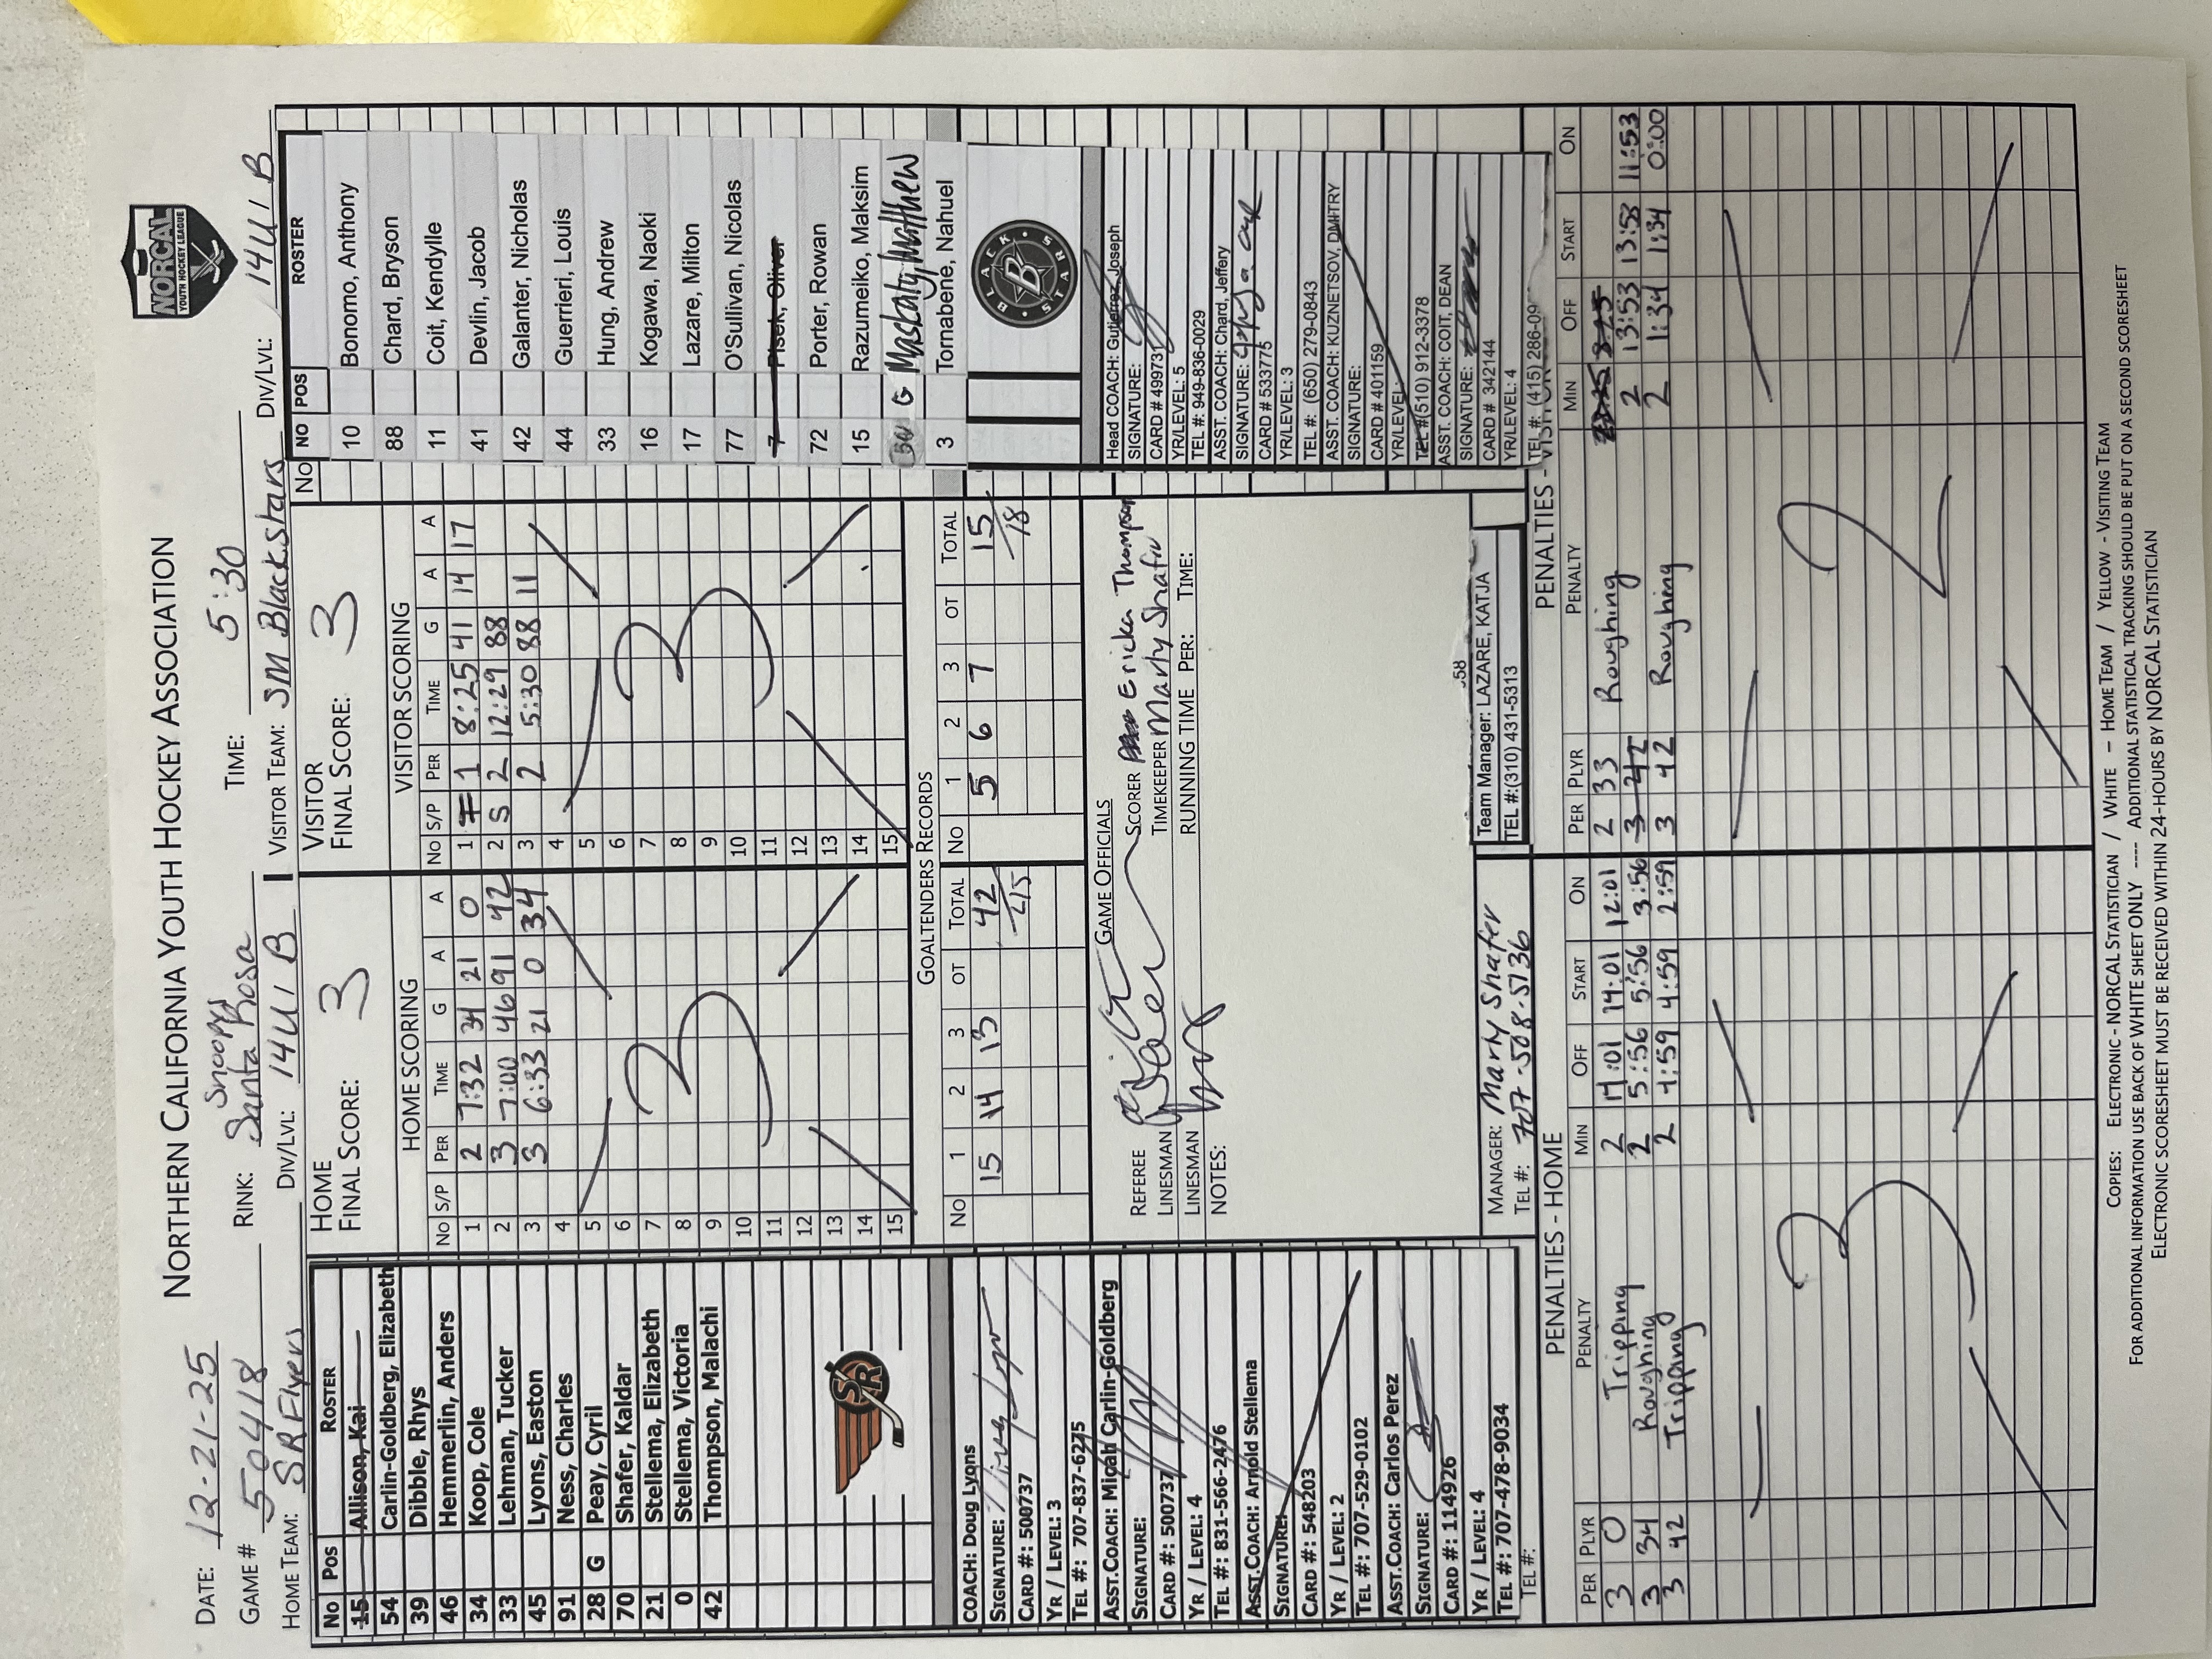 NORTHERN CALIFORNIA YOUTH HOCKEY ASSOCIATION
NORCAL
YOUTH HOCKEY LEAGUE
DATE: 12-21-25
GAME # 50418 RINK: Snoopys Santa Rosa TIME: 5:30
HOME TEAM: SR Flyers DIV/LVL: 14U1 B VISITOR TEAM: SM Blackstars DIV/LVL: 14U1 B
No Pos ROSTER
15 Allison, Kai
54 Carlin-Goldberg, Elizabeth
39 Dibble, Rhys
46 Hemmerlin, Anders
34 Koop, Cole
33 Lehman, Tucker
45 Lyons, Easton
91 Ness, Charles
28 G Peay, Cyril
70 Shafer, Kaldar
21 Stellema, Elizabeth
0 Stellema, Victoria
42 Thompson, Malachi
SR
COACH: Doug Lyons
SIGNATURE:
CARD #: 500737
YR / LEVEL: 3
TEL #: 707-837-6275
Asst.COACH: Micah Carlin-Goldberg
SIGNATURE:
CARD #: 500737
YR / LEVEL: 4
TEL #: 831-566-2476
Asst.COACH: Arnold Stellema
SIGNATURE:
CARD #: 548203
YR / LEVEL: 2
TEL #: 707-529-0102
Asst.COACH: Carlos Perez
SIGNATURE:
CARD #: 114926
YR / LEVEL: 4
TEL #: 707-478-9034
TEL #:
HOME
FINAL SCORE: 3
HOME SCORING
No S/P PER TIME G A A
1 2 7:32 34 21 0
2 3 7:00 46 91 42
3 3 6:33 21 0 34
4
5
6
7
8
9
10
11
12
13
14
15
3
VISITOR
FINAL SCORE: 3
VISITOR SCORING
No S/P PER TIME G A A
1 F 1 8:25 41 14 17
2 S 2 12:29 88
3 2 5:30 88 11
4
5
6
7
8
9
10
11
12
13
14
15
3
GOALTENDERS RECORDS
No 1 2 3 OT TOTAL No 1 2 3 OT TOTAL
15 14 13 42/45 5 6 7 15/18
GAME OFFICIALS
REFEREE SCORER Ericka Thompson
LINESMAN TIMEKEEPER Marty Shafer
LINESMAN RUNNING TIME PER: TIME:
NOTES:
MANAGER: Marty Shafer
TEL #: 707-508-5136
58
Team Manager: LAZARE, KATJA
TEL #:(310) 431-5313
No
NO POS ROSTER
10 Bonomo, Anthony
88 Chard, Bryson
11 Coit, Kendylle
41 Devlin, Jacob
42 Galanter, Nicholas
44 Guerrieri, Louis
33 Hung, Andrew
16 Kogawa, Naoki
17 Lazare, Milton
77 O'Sullivan, Nicolas
7 Pisek, Oliver
72 Porter, Rowan
15 Razumeiko, Maksim
G
3 Tornabene, Nahuel
BLACK STARS
B
Head COACH: Gutierrez, Joseph
SIGNATURE:
CARD # 499973
YR/LEVEL: 5
TEL #: 949-836-0029
ASST. COACH: Chard, Jeffery
SIGNATURE:
CARD # 533775
YR/LEVEL: 3
TEL #: (650) 279-0843
ASST. COACH: KUZNETSOV, DMITRY
SIGNATURE:
CARD # 401159
YR/LEVEL:
TEL #:(510) 912-3378
ASST. COACH: COIT, DEAN
SIGNATURE:
CARD # 342144
YR/LEVEL: 4
TEL #: (415) 286-09
PENALTIES - HOME
PER PLYR PENALTY MIN OFF START ON
3 0 Tripping 2 14:01 14:01 12:01
3 34 Roughing 2 5:56 5:56 3:56
3 42 Tripping 2 4:59 4:59 2:59
3
PENALTIES - VISITOR
PER PLYR PENALTY MIN OFF START ON
2 33 Roughing 2 13:53 13:53 11:53
3 42
3 42 Roughing 2 1:34 1:34 0:00
2
COPIES: ELECTRONIC - NORCAL STATISTICIAN / WHITE – HOME TEAM / YELLOW - VISITING TEAM
FOR ADDITIONAL INFORMATION USE BACK OF WHITE SHEET ONLY ---- ADDITIONAL STATISTICAL TRACKING SHOULD BE PUT ON A SECOND SCORESHEET
ELECTRONIC SCORESHEET MUST BE RECEIVED WITHIN 24-HOURS BY NORCAL STATISTICIAN